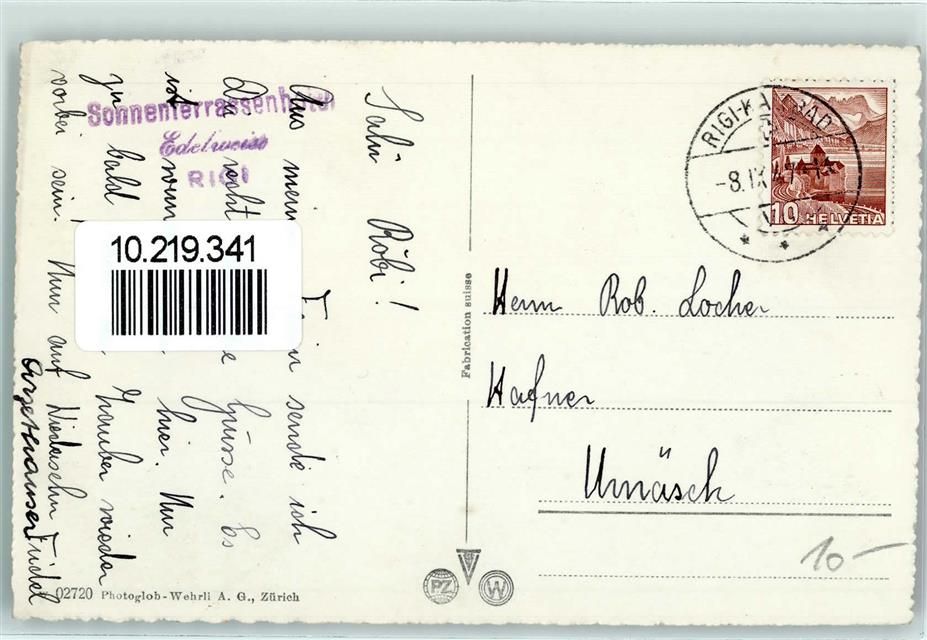 Salü Röbi!
Aus mein sende ich
Dir recht Grüsse. Es
ist wun hier. Nur
zu bald Zauber wieder
vorbei sein! Nun auf Wiedersehn
Sonnenterrassenhotel
Edelweiss
RIGI
10.219.341
Fabrication suisse
RIGI-KALTBAD
-8.IX.47
10 HELVETIA
Herrn Rob. Locher
Hafner
Urnäsch
10-
PZ
W
02720 Photoglob-Wehrli A. G., Zürich